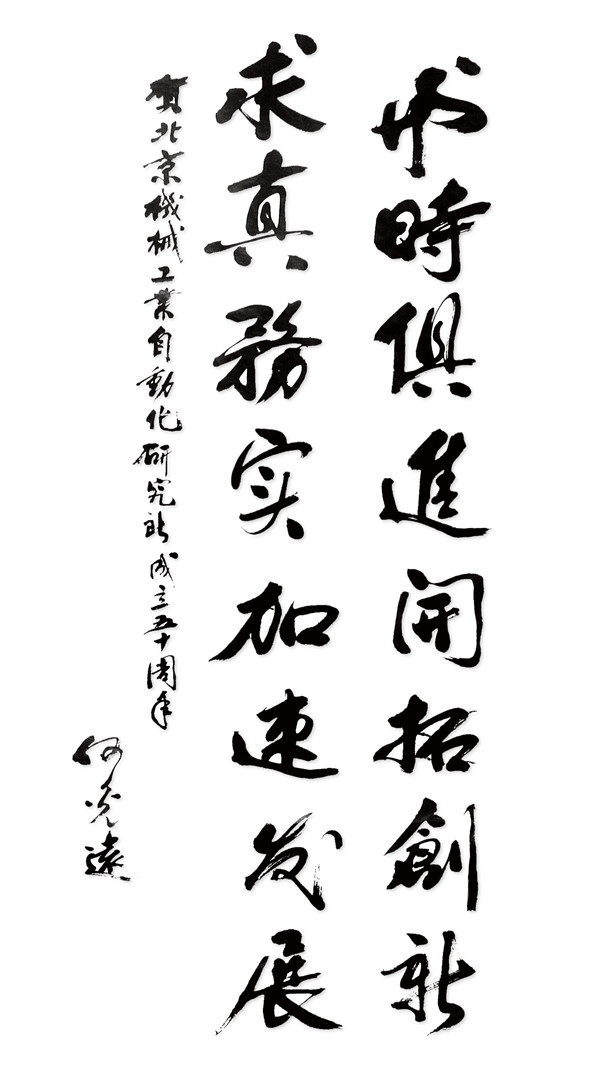 与時俱進開拓創新
求真務实加速发展
賀北京機械工業自動化研究所成立五十周年
何光遠